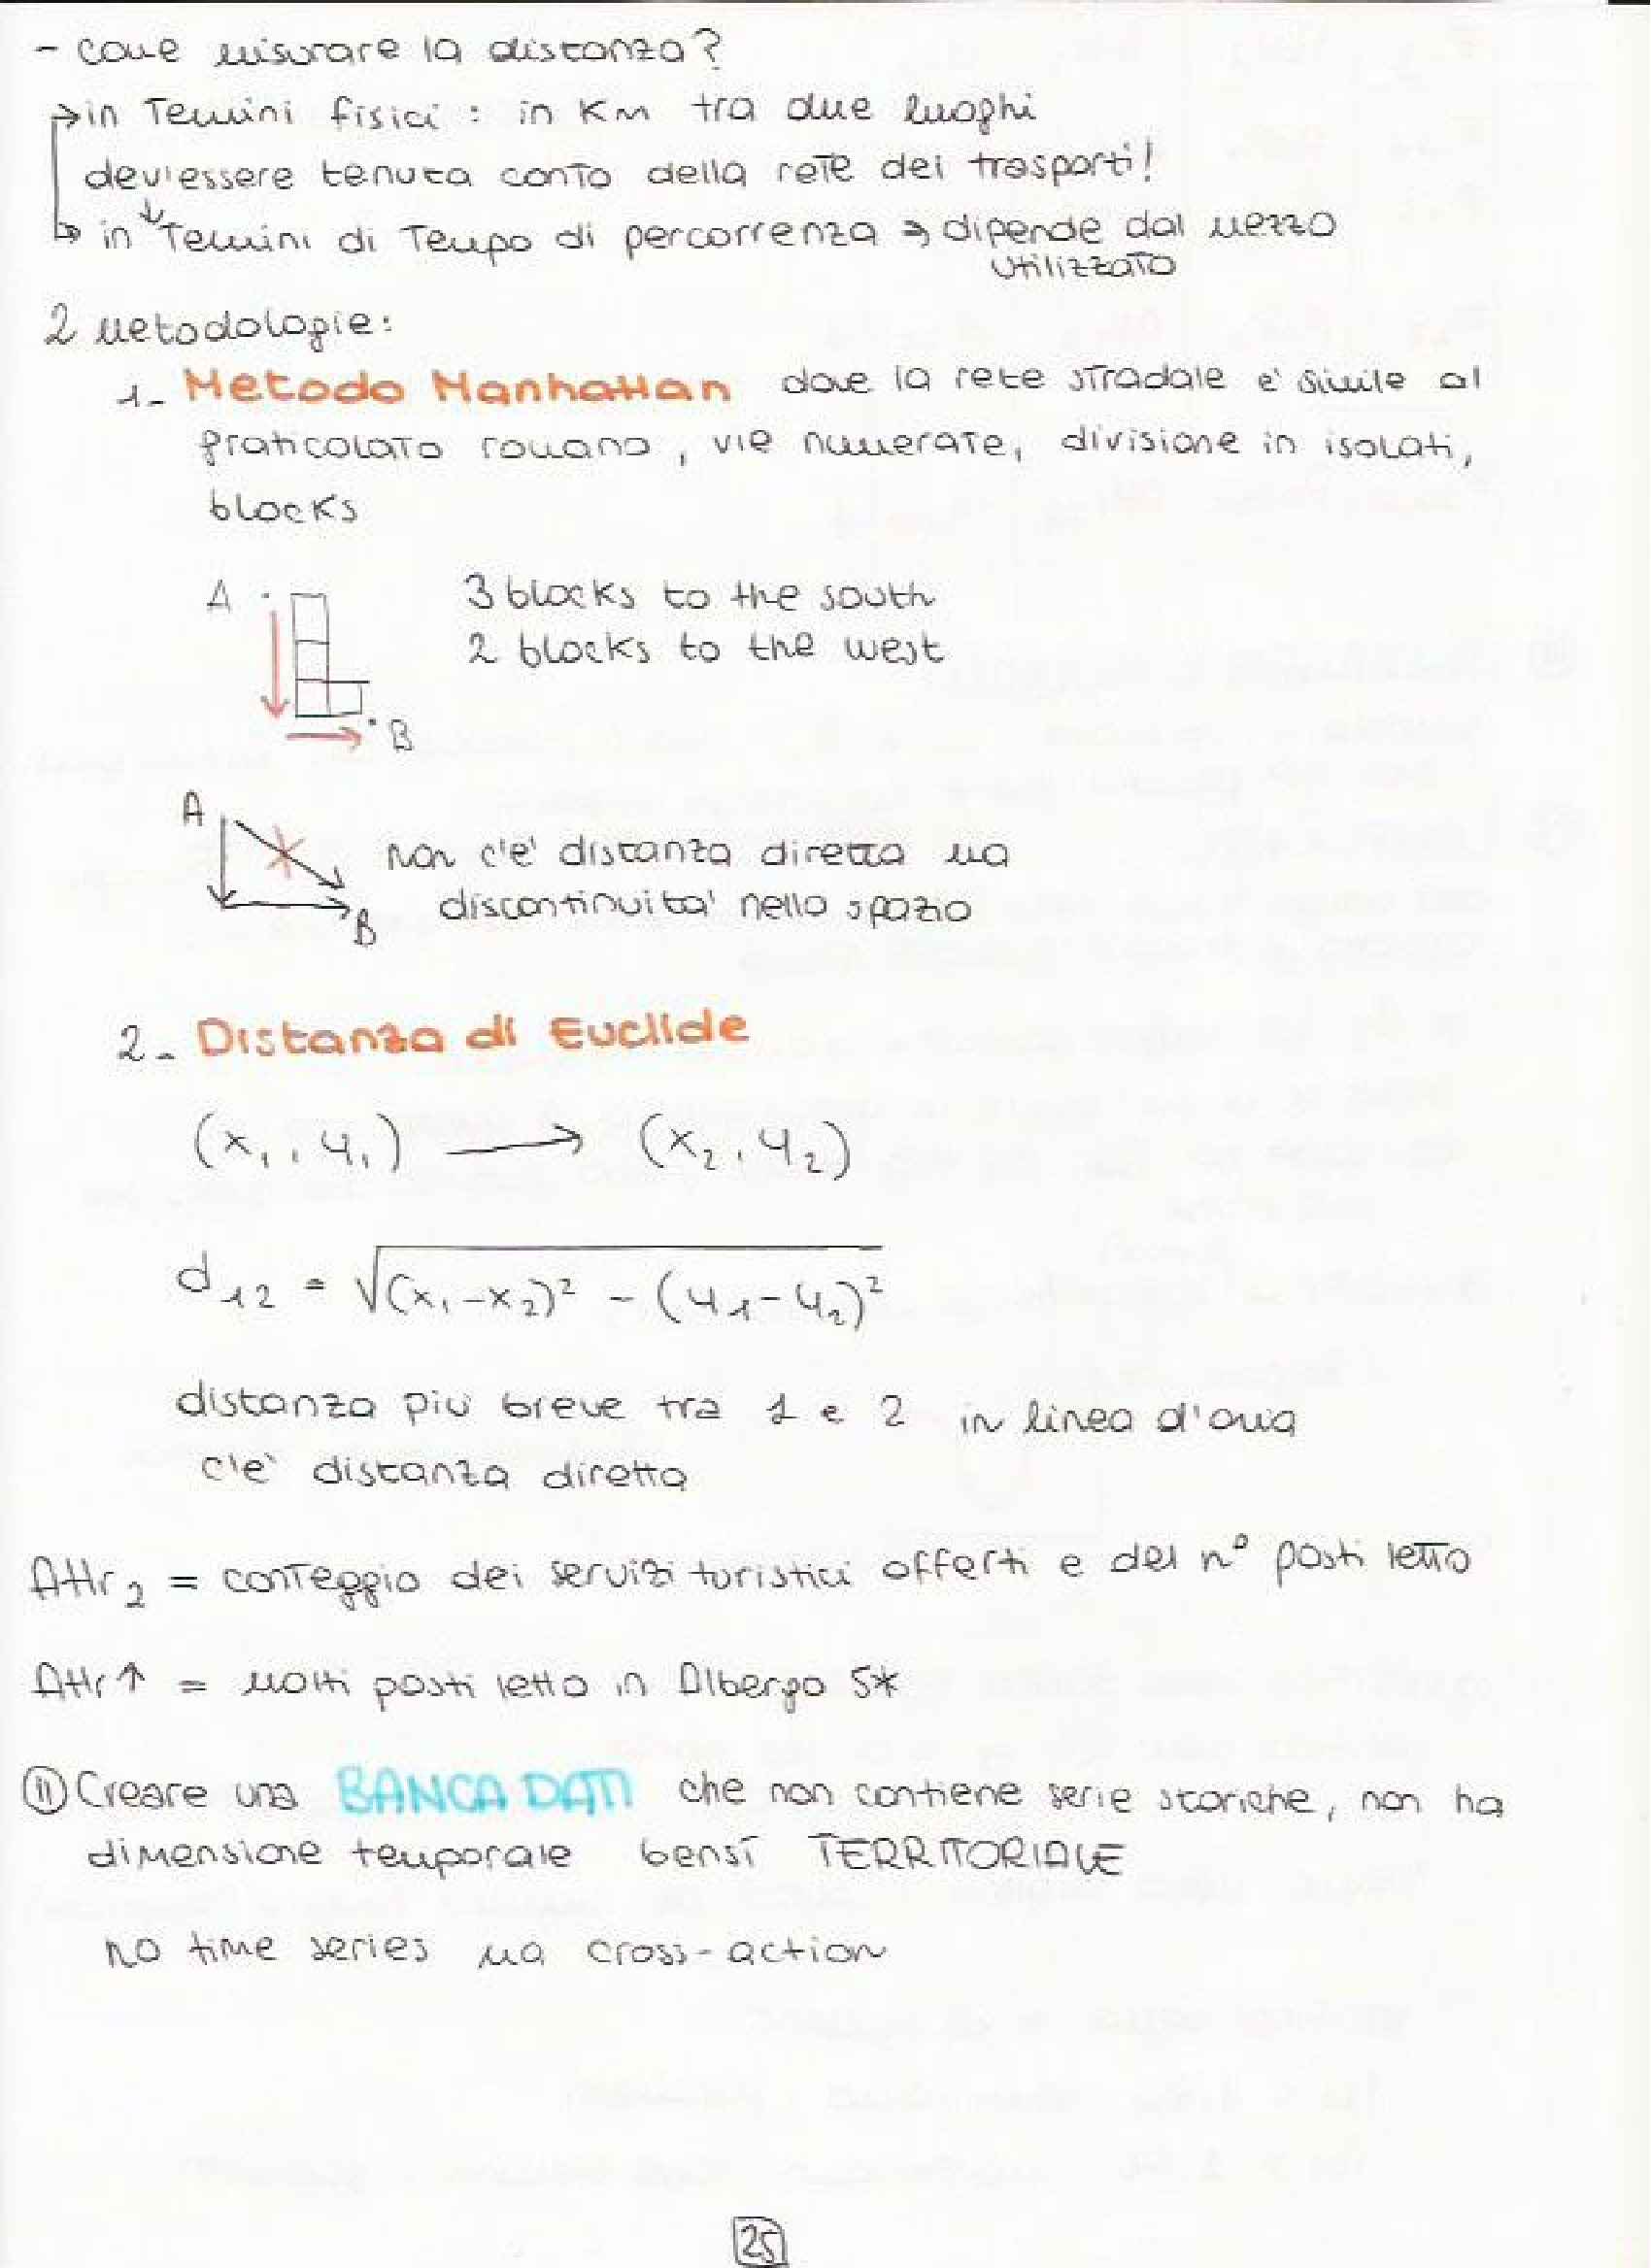 - come misurare la distanza?
→ in Termini fisici : in Km tra due luoghi
dev'essere tenuta conto della rete dei trasporti!
↳ in Termini di Tempo di percorrenza → dipende dal mezzo
utilizzato
2 metodologie:
1- Metodo Manhattan dove la rete stradale e' simile al
graticolato romano, vie numerate, divisione in isolati,
blocks
A 3 blocks to the south
2 blocks to the west
B
A
non c'e' distanza diretta ma
discontinuita' nello spazio
B
2- Distanza di Euclide
(x₁, y₁) → (x₂, y₂)
d₁₂ = √(x₁-x₂)² - (y₁-y₂)²
distanza più breve tra 1 e 2 in linea d'aria
c'e' distanza diretta
Attr₂ = conteggio dei servizi turistici offerti e del n° posti letto
Attr↑ = molti posti letto in Albergo 5*
ⓘⓘ Creare una BANCA DATI che non contiene serie storiche, non ha
dimensione temporale bensì TERRITORIALE
no time series ma cross-action
25